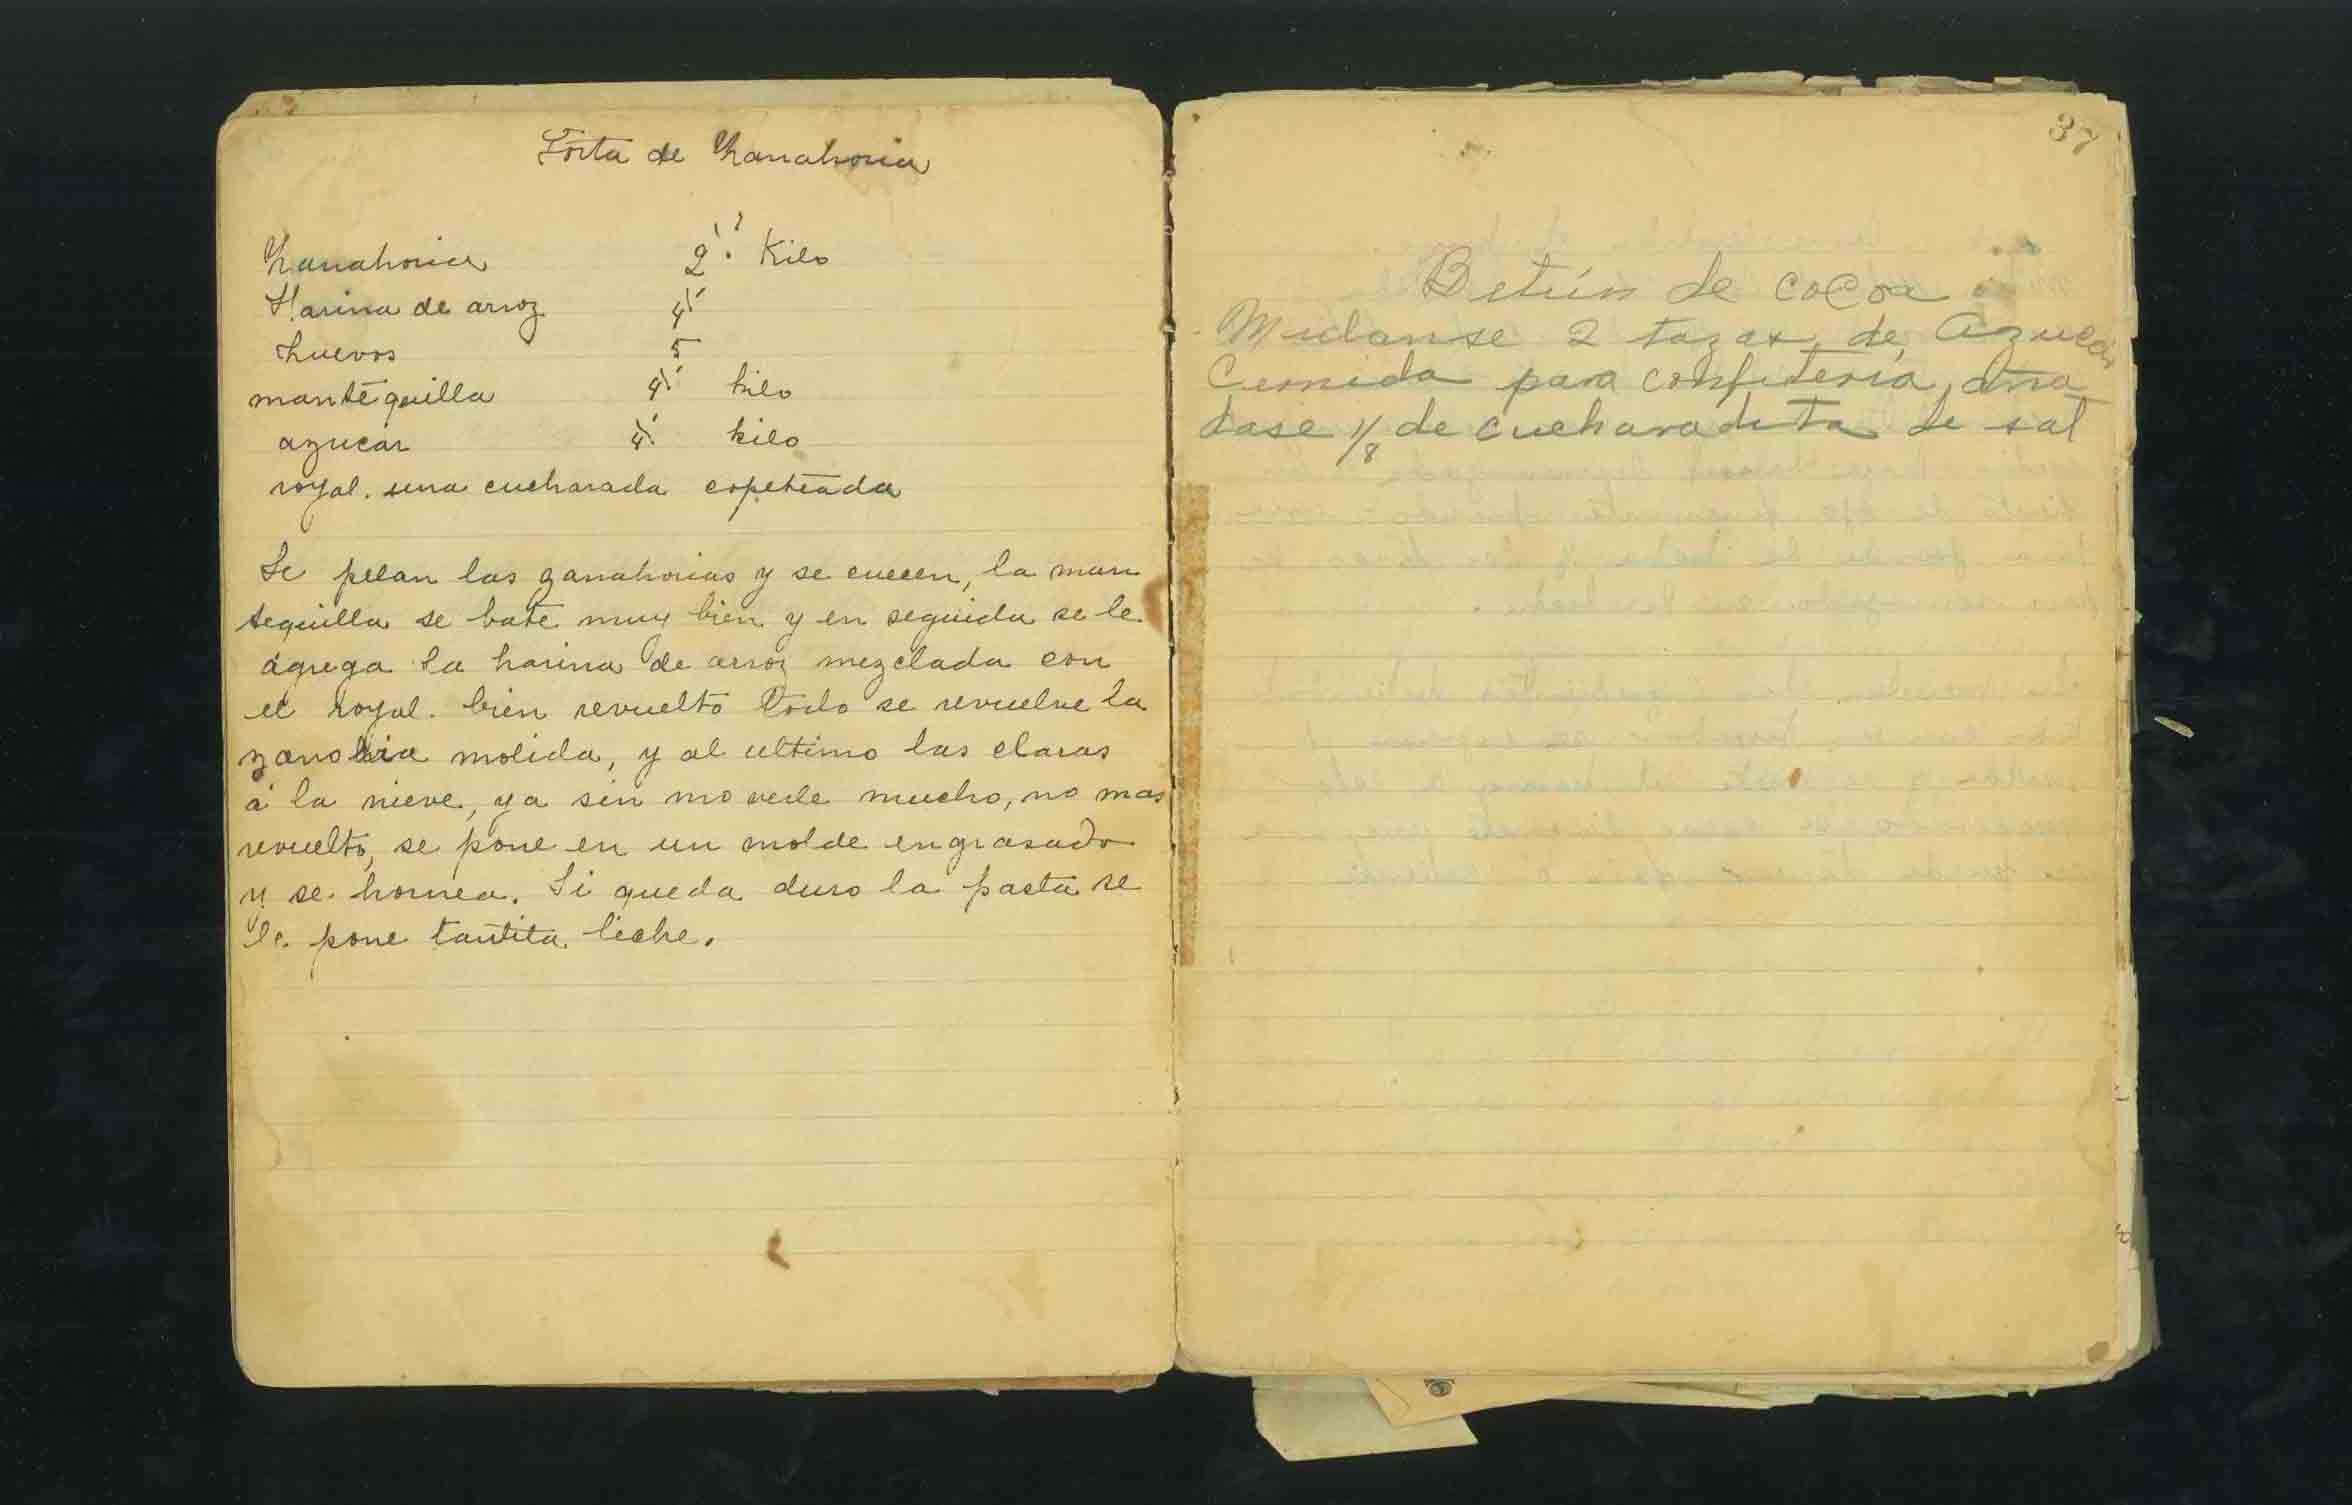 Torta de Zanahoria
Zanahoria 1/2 Kilo
Harina de arroz 1/4
huevos 5
mantequilla 1/4 kilo
azucar 1/4 kilo
royal. una cucharada copeteada
Se pelan las zanahorias y se cuecen, la man
tequilla se bate muy bien y en seguida se le
agrega la harina de arroz mezclada con
el royal. bien revuelto todo se revuelve la
molida, y al ultimo las claras
á la nieve, ya sin moverle mucho, no mas
revuelto, se pone en un molde engrasado
y se hornea. Si queda duro la pasta se
le pone tantita leche.
37
Betún de cocoa
Midanse 2 tazas de Azucar
Cernida para confiteria, aña
dase 1/8 de cucharadita de sal